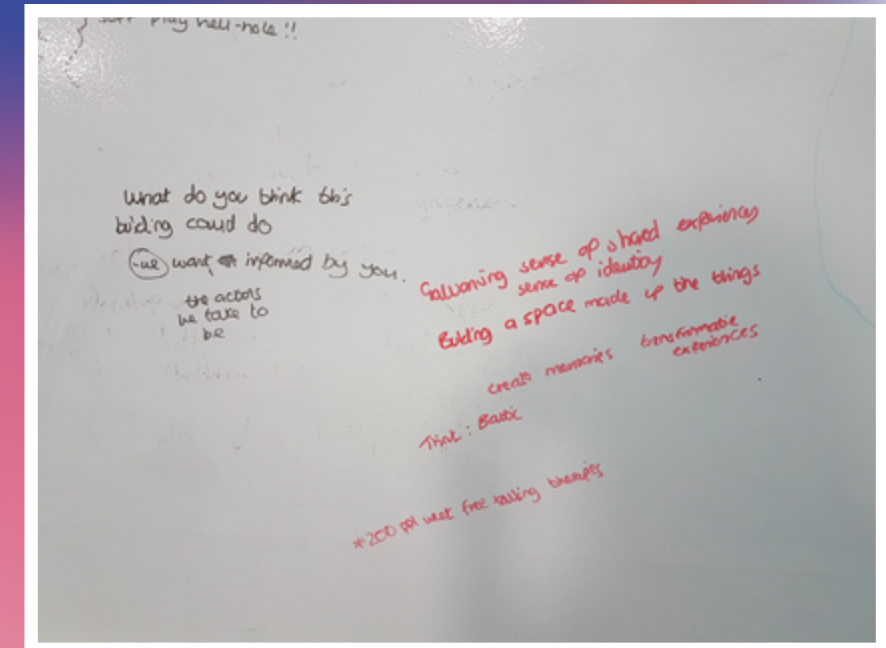 play hell-hole !!
what do you think this
building could do
-we want informed by you.
the actors
we take to
be
Galvaning sense of shared experiences
sense of identity
Building a space made up the things
create memories transformative
experiences
Think : Baltic
*200 ppl week free talking therapies